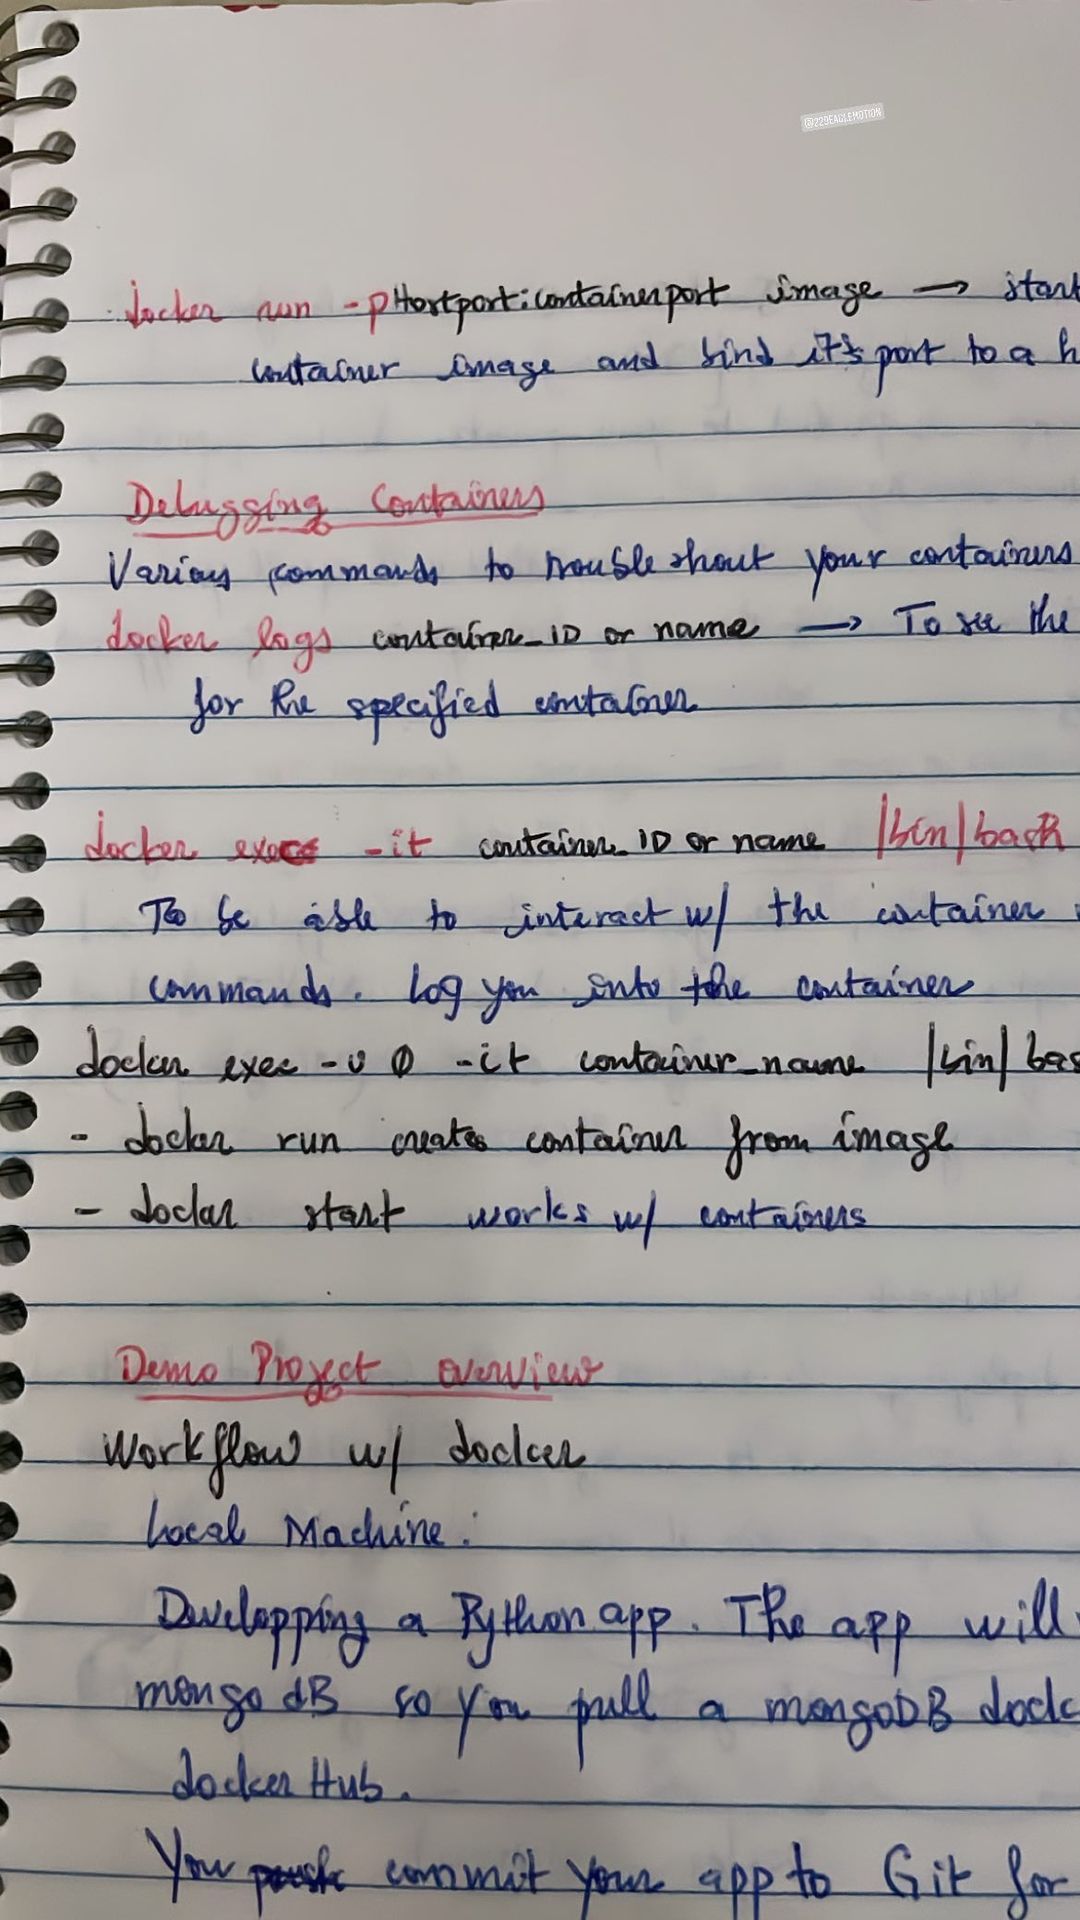 @22DEAGLEMOTION
docker run -p Hostport:containerport image → start
container image and bind it's port to a h
Debugging Containers
Various commands to troubleshout your containers
docker logs container_ID or name → To see the
for the specified container
docker exec -it container_ID or name /bin/bash
To be able to interact w/ the container
commands. Log you into the container
docker exec -u 0 -it container_name /bin/bas
- docker run creates container from image
- docker start works w/ containers
Demo Project overview
Workflow w/ docker
Local Machine:
Developping a Python app. The app will
mongo dB so you pull a mongoDB dock
docker Hub.
You commit your app to Git for